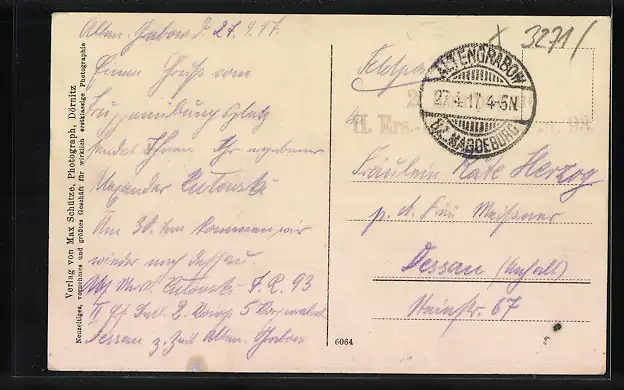 Alten-Grabow d. 27.4.17.
Einen Gruß vom
Truppenübungsplatz
sendet Ihnen Ihr ergebener
Alexander Lutowski
Am 30. kommen wir
wieder nach Dessau.
Lutowski I. R. 93
II 2. Komp 5 Korporalsch.
Dessau z. Zeit Alten-Grabow
Verlag von Max Schütze, Photograph, Dörnitz
Neuzeitiges, vornehmes und größtes Geschäft für wirklich erstklassige Photographie
6064
3271/
Feldpost
ALTENGRABOW
27.4.17.4-5N.
BZ. MAGDEBURG
II. Ers. 93.
Fräulein Käte Herzog
p. A. Frau Meißner
Dessau (Anhalt)
67